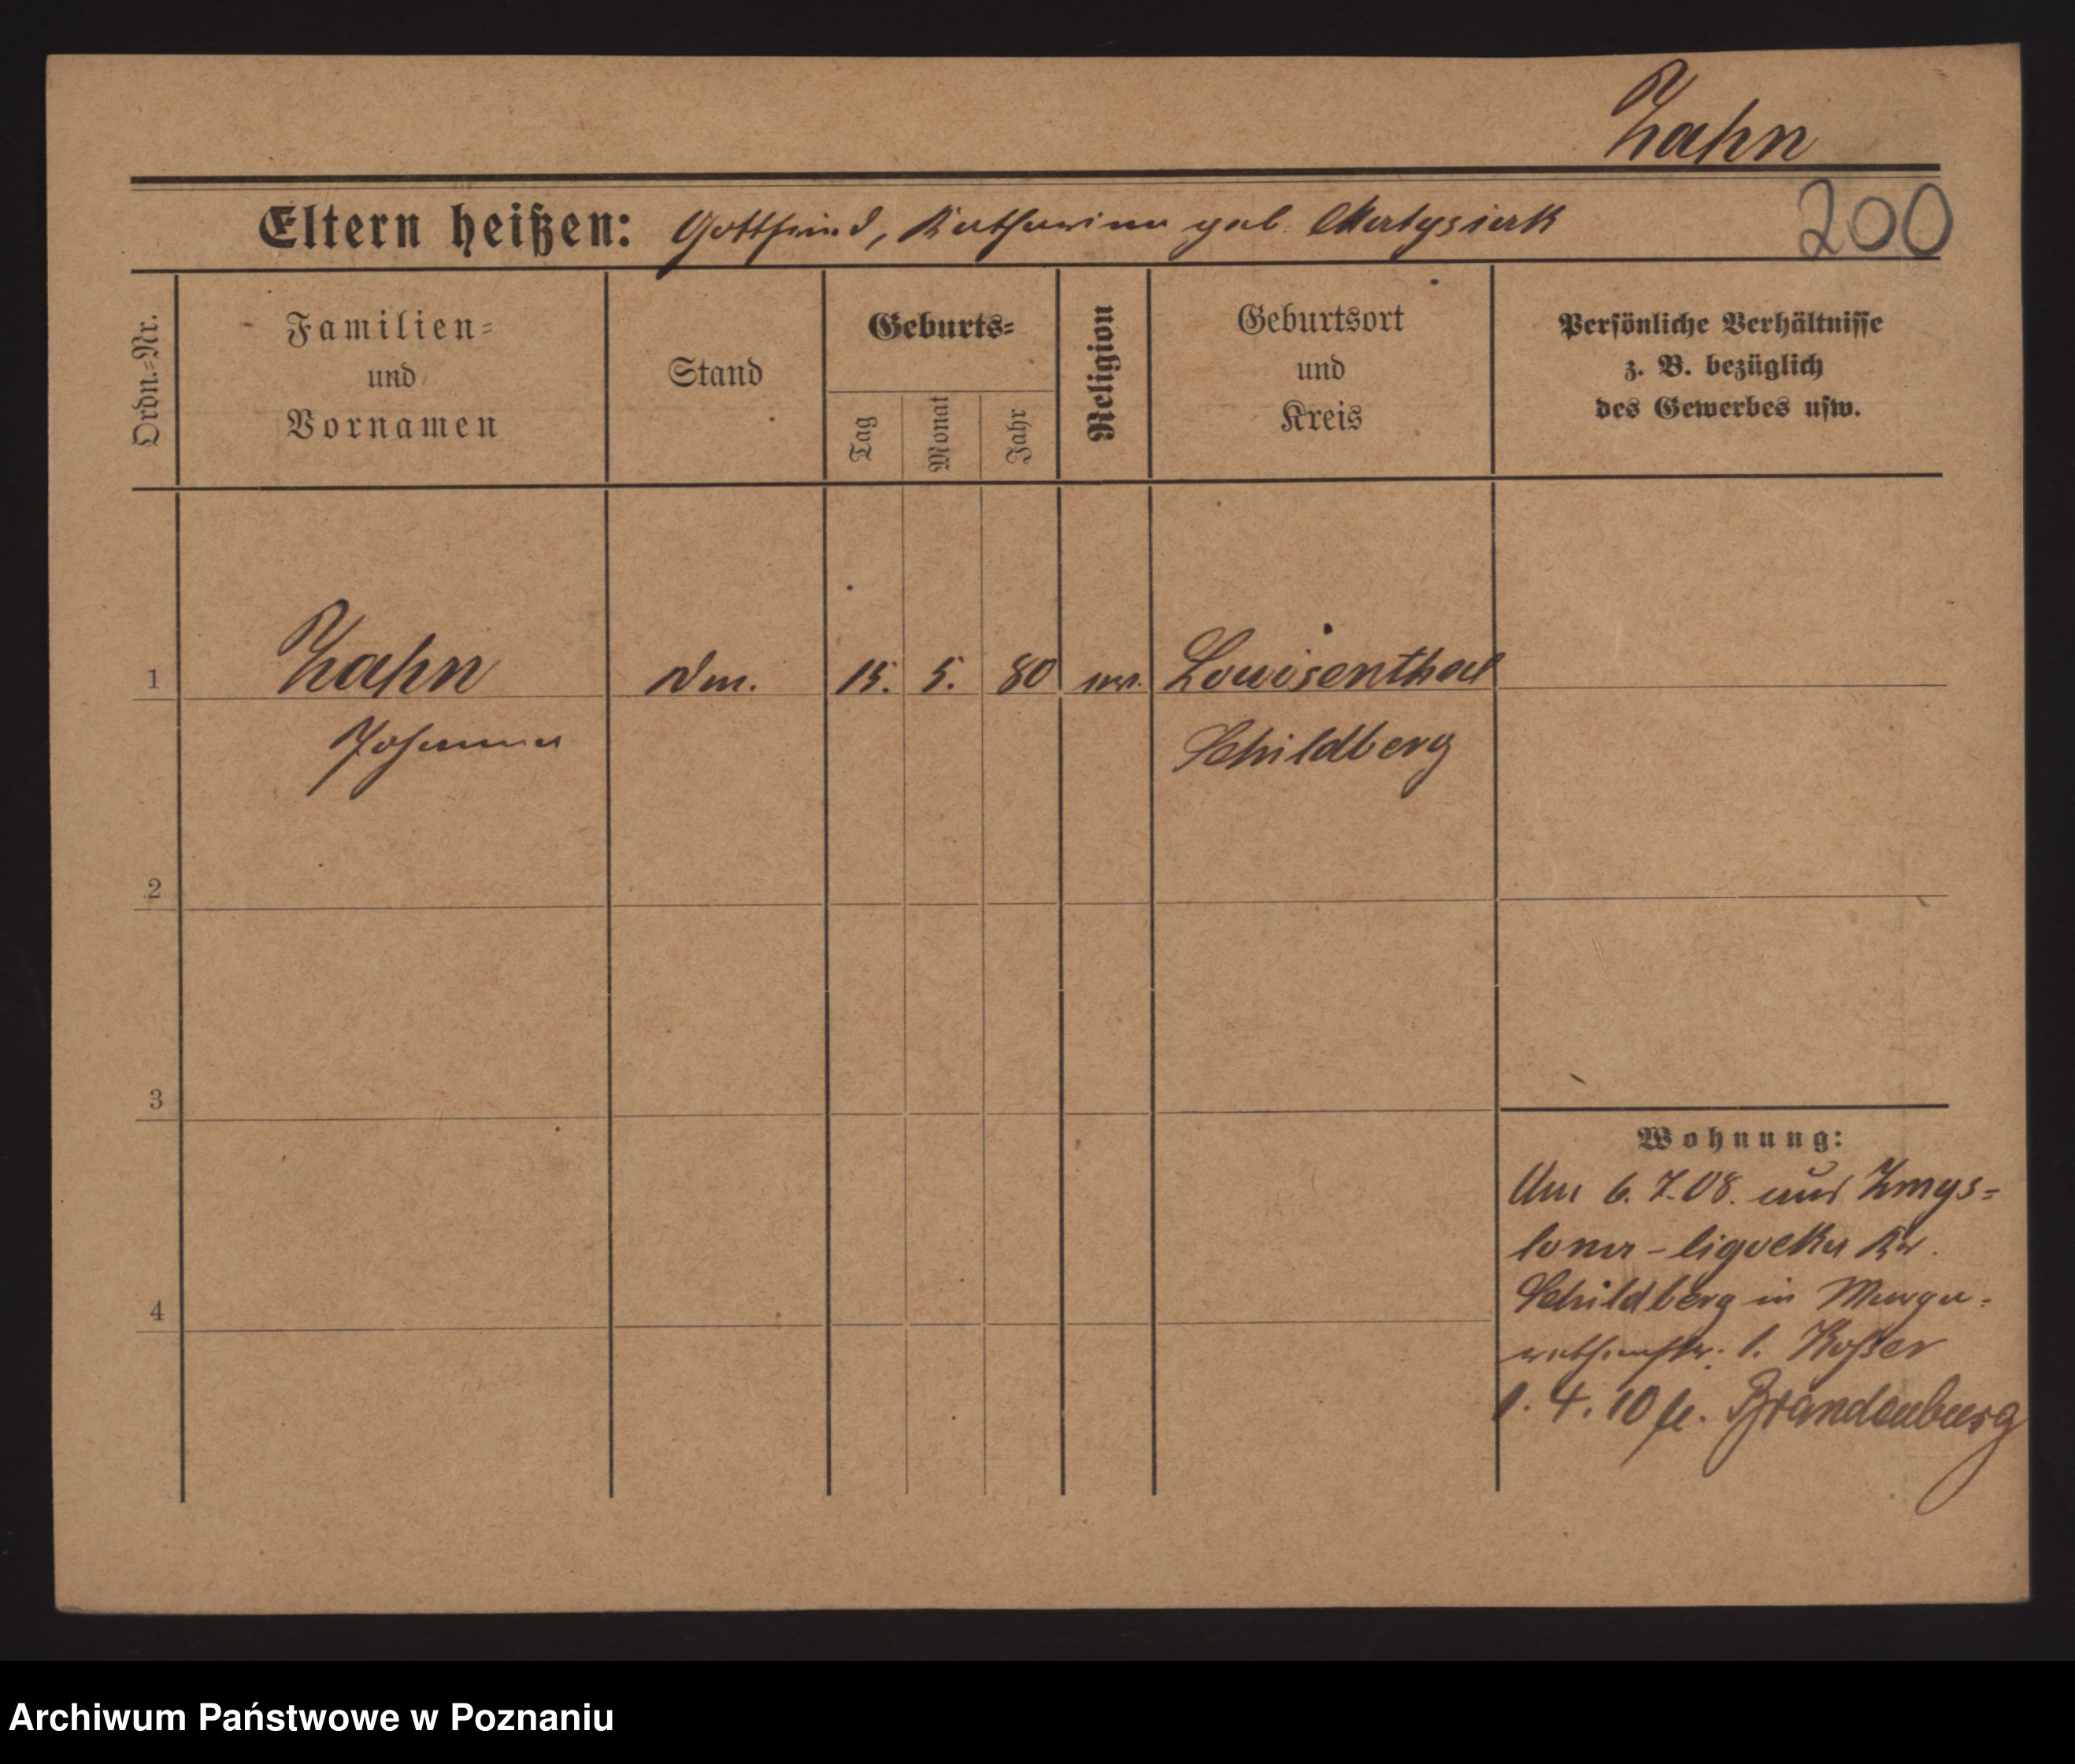 Zahn
Eltern heißen: Gottfried, Katharina geb. Martysiak
200
Ordn.=Nr.
Familien=
und
Vornamen
Stand
Geburts=
Tag
Monat
Jahr
Religion
Geburtsort
und
Kreis
Persönliche Verhältnisse
z. B. bezüglich
des Gewerbes usw.
1 Zahn 15. 5. 80 Louisenthal
Johanna Schildberg
2
3
4
Wohnung:
Am 6.7.08. aus Zmys=
lona-ligocka Kr.
Schildberg in
b. Koszer
1.4.10 fr. Brandenburg
Archiwum Państwowe w Poznaniu